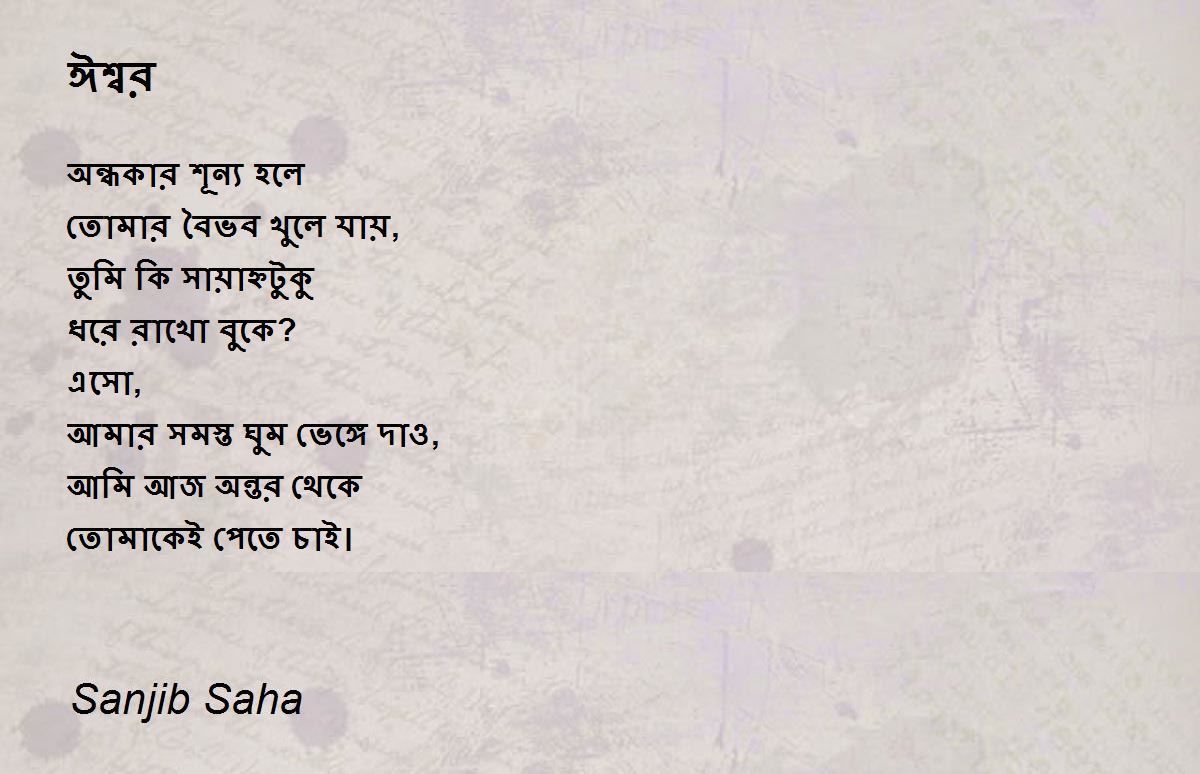 ঈশ্বর
অন্ধকার শূন্য হলে
তোমার বৈভব খুলে যায়,
তুমি কি সায়াহ্নটুকু
ধরে রাখো বুকে?
এসো,
আমার সমস্ত ঘুম ভেঙ্গে দাও,
আমি আজ অন্তর থেকে
তোমাকেই পেতে চাই।
Sanjib Saha